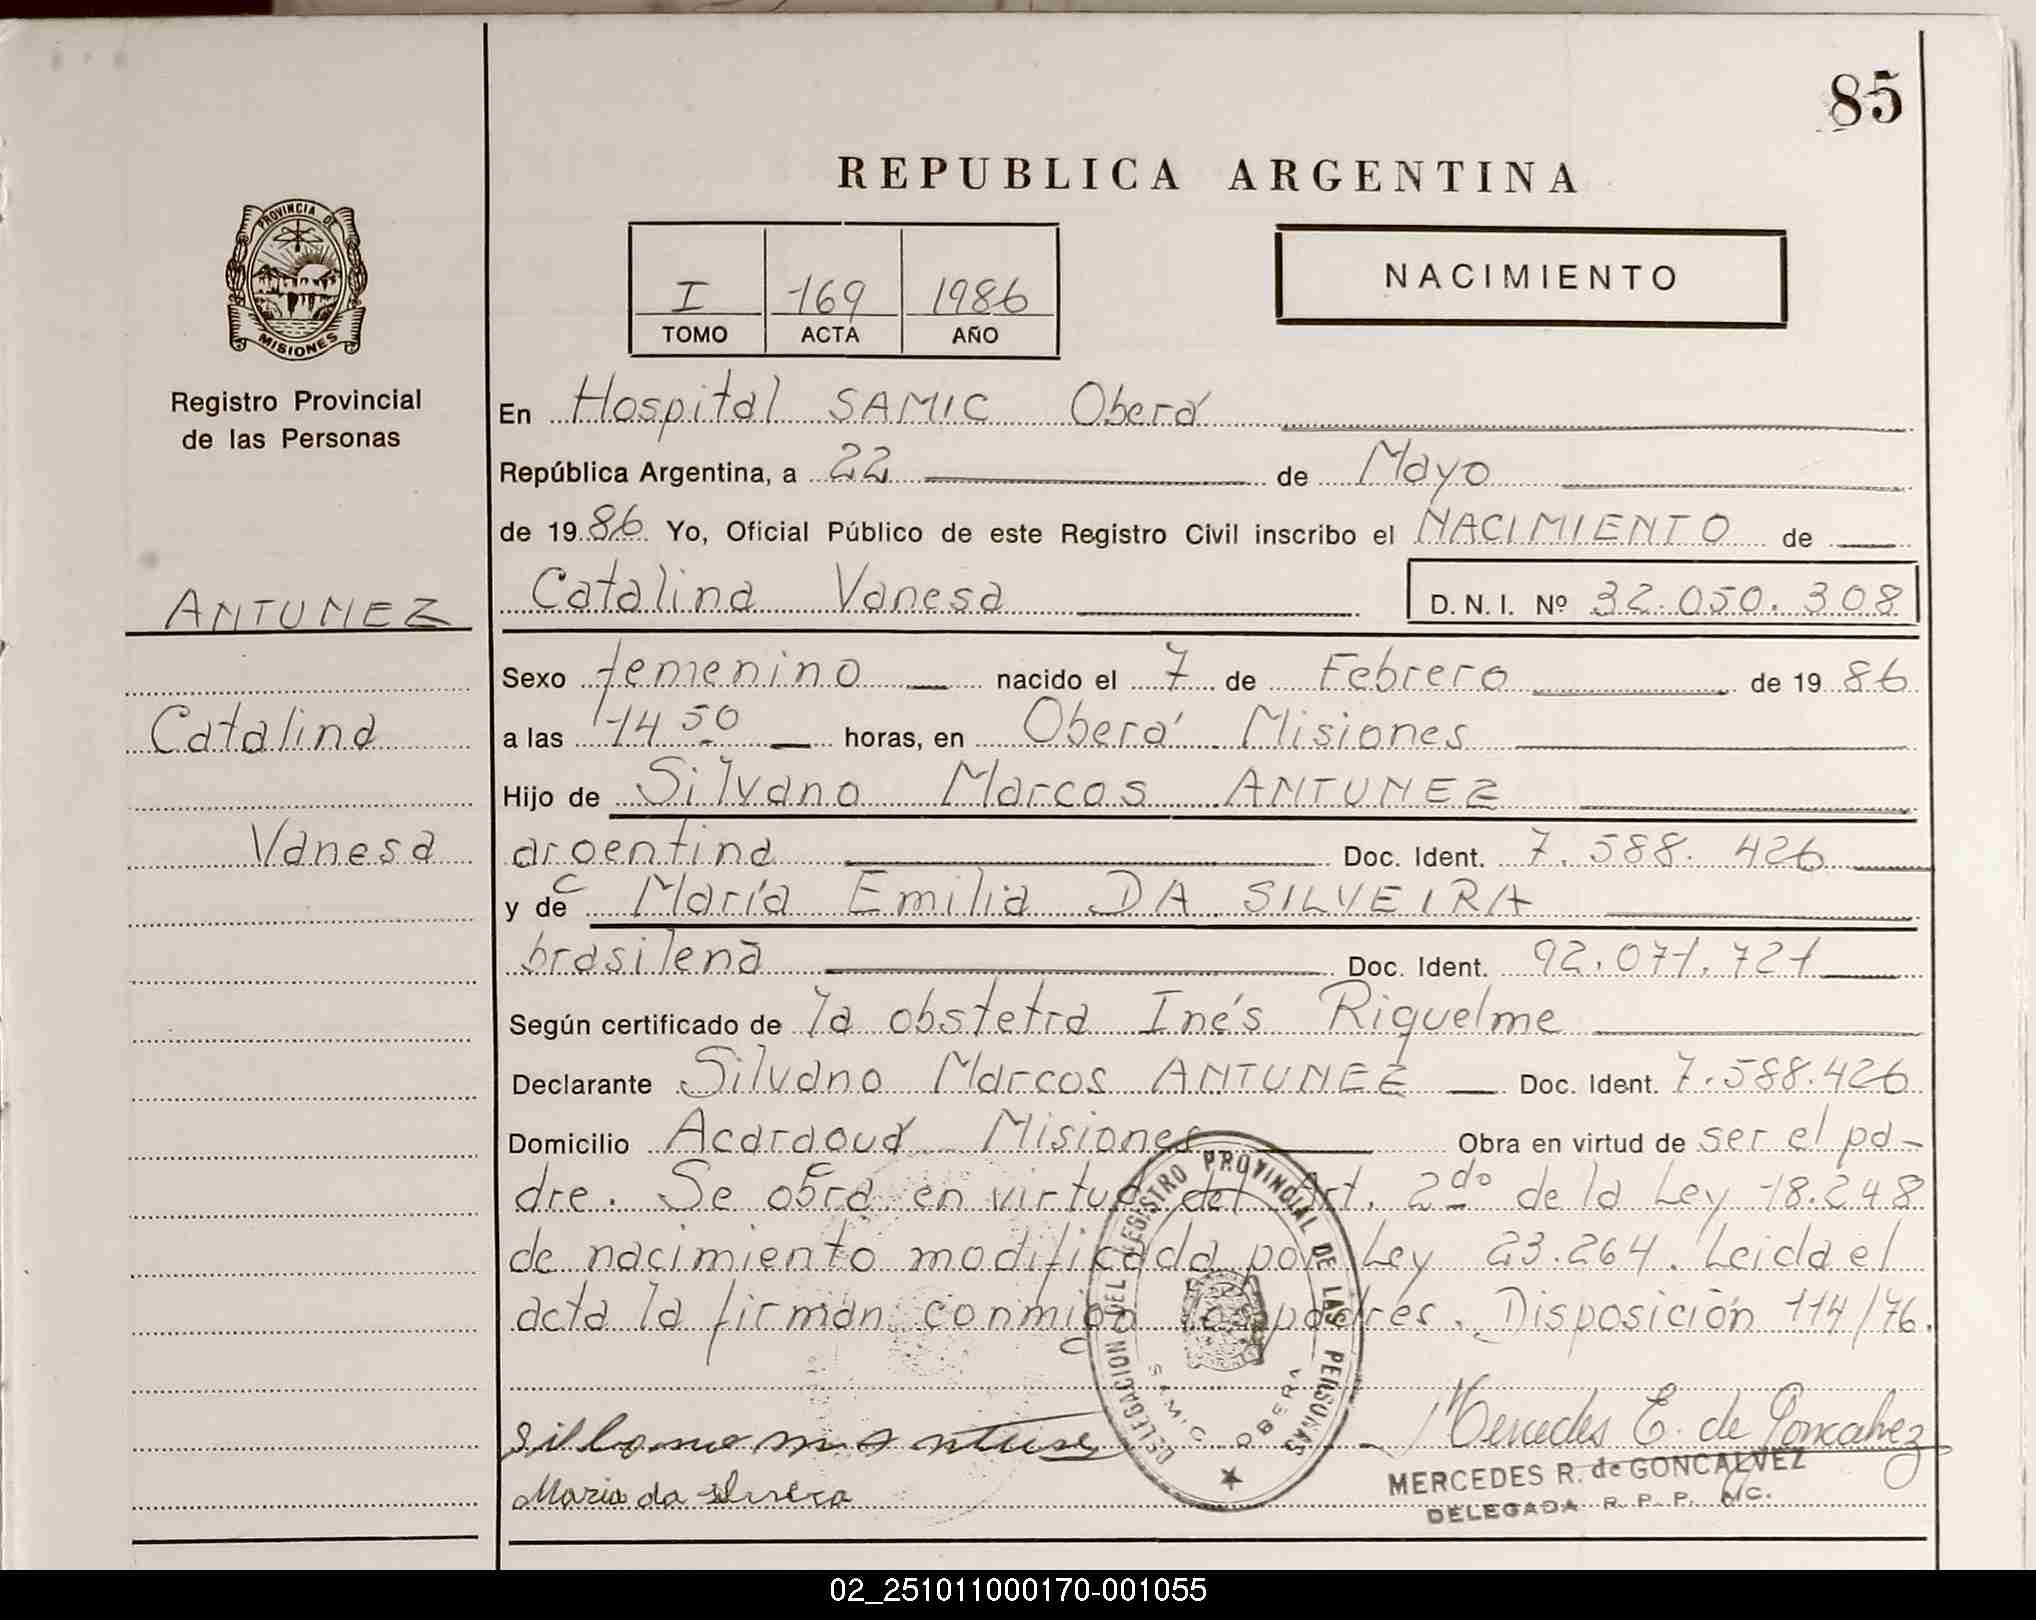 85
REPUBLICA ARGENTINA
PROVINCIA DE
MISIONES
Registro Provincial
de las Personas
I 169 1986
TOMO ACTA AÑO
NACIMIENTO
En Hospital SAMIC Oberá
República Argentina, a 22 de Mayo
de 1986 Yo, Oficial Público de este Registro Civil inscribo el NACIMIENTO de
ANTUNEZ
Catalina Vanesa D. N. I. Nº 32.050.308
Sexo femenino nacido el 7 de Febrero de 1986
Catalina
a las 14 50 horas, en Oberá Misiones
Hijo de Silvano Marcos ANTUNEZ
Vanesa
argentina Doc. Ident. 7.588.426
y de María Emilia DA SILVEIRA
brasilena Doc. Ident. 92.071.721
Según certificado de la obstetra Inés Riquelme
Declarante Silvano Marcos ANTUNEZ Doc. Ident. 7.588.426
Domicilio Acaraguá Misiones Obra en virtud de ser el pa-
dre. Se obra en virtud del Art. 2do de la Ley 18.248
de nacimiento modificada por Ley 23.264. Leida el
acta la firman conmigo los padres. Disposición 114/76.
DELEGACION DEL REGISTRO PROVINCIAL DE LAS PERSONAS
SAMIC OBERA
Mercedes E. de Goncalvez
MERCEDES R. de GONCALVEZ
DELEGADA R. P. P.
Maria da
02_251011000170-001055